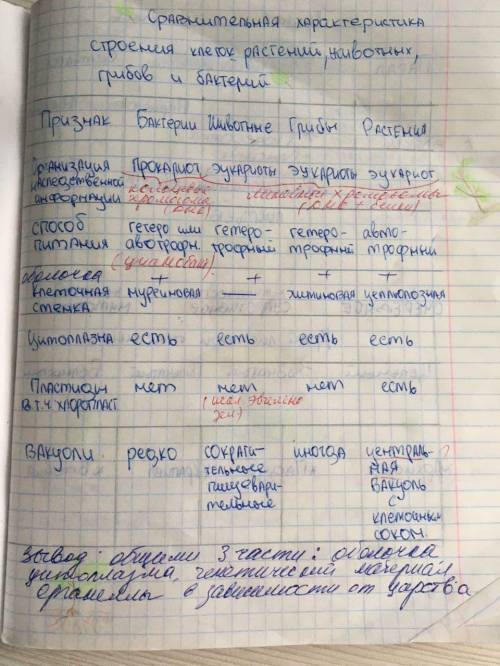 Сравнительная характеристика
строения клеток растений, животных,
грибов и бактерий
Признак Бактерии Животные Грибы Растения
Организация наследственной информации
Прокариот эукариоты эукариоты эукариот
кольцевые хромосомы (ДНК)
линейные хромосомы (ДНК + белки)
способ питания
гетеро или автотрофн. гетеро-трофный гетеро-трофный авто-трофный
(цианобакт).
оболочка + + + +
клеточная стенка муреиновая — хитиновая целлюлозная
Цитоплазма есть есть есть есть
Пластиды нет нет нет есть
в т.ч. хлоропласт
(искл эвглена зел)
Вакуоли редко сократи-тельные пищевари-тельные иногда централь-ная вакуоль с клеточным соком.
Вывод: общими 3 части: оболочка
цитоплазма, генетический материал
органеллы в зависимости от царства